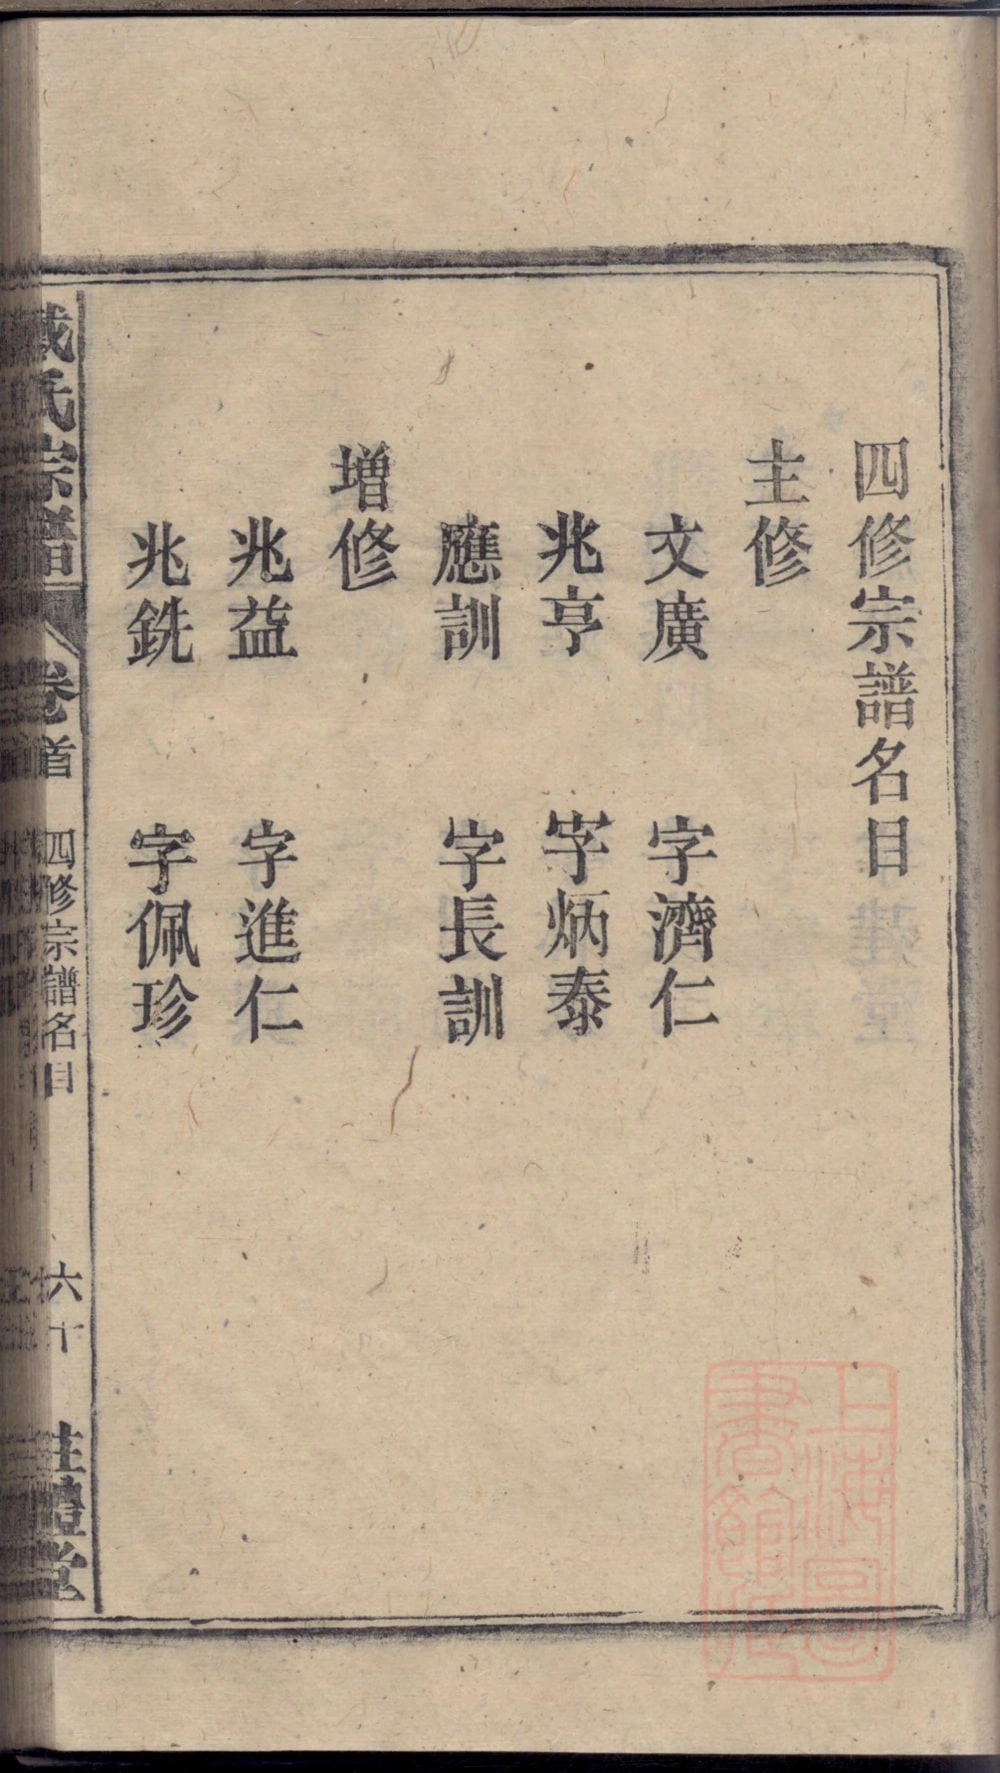 四修宗譜名目
主修
文廣 字濟仁
兆亨 字炳泰
應訓 字長訓
增修
兆益 字進仁
兆銑 字佩珍
氏宗譜 卷首 四修宗譜名目 六十 禮堂
上海圖書館藏